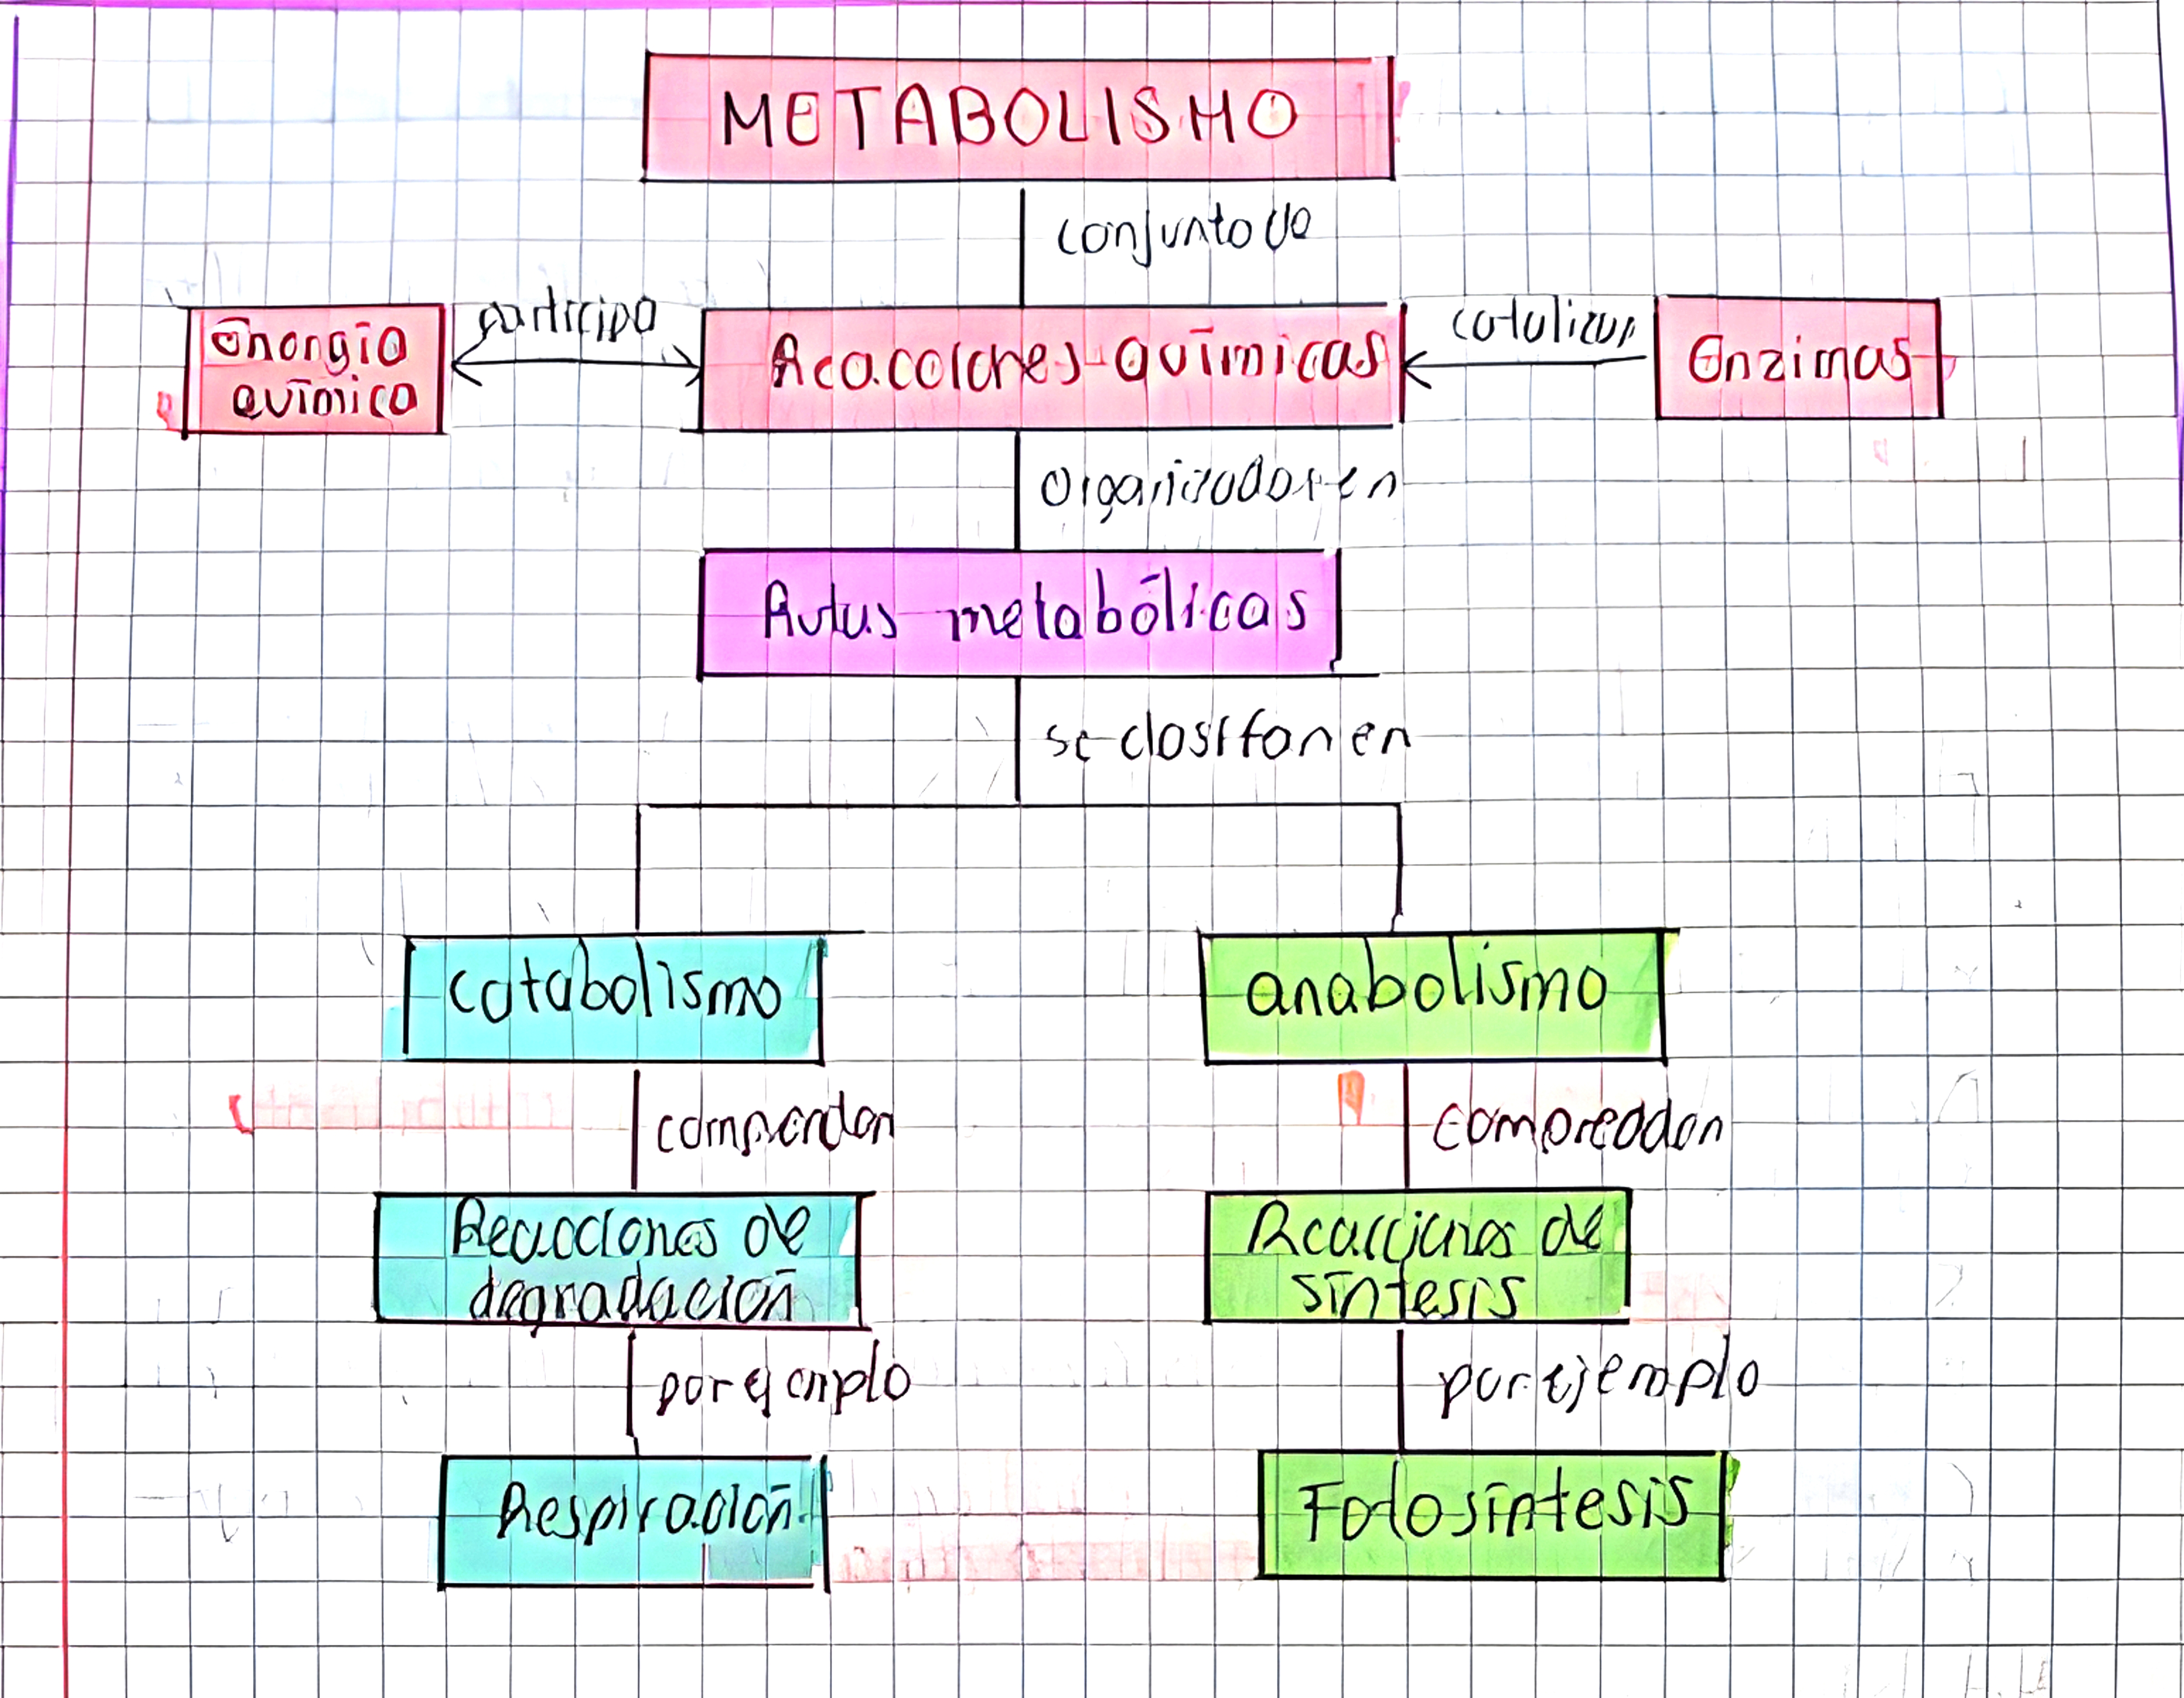 METABOLISMO
conjunto de
Energía
química
participa
Reacciones químicas
catalizan
Enzimas
organizados en
Rutas metabólicas
se clasifan en
catabolismo
anabolismo
comprenden
compreddon
Reacciones de
degradación
Reacciones de
síntesis
por ejemplo
por ejemplo
Respiración
Fotosíntesis